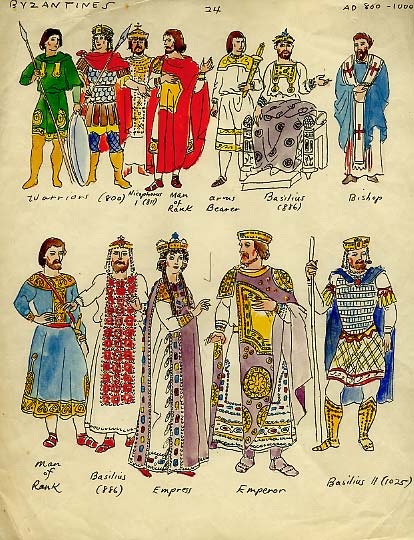 BYZANTINES 24 AD 800-1000
Warriors (800) Nicephorus I (811) Man of Rank arms Bearer Basilius (886) Bishop
Man of Rank Basilius (886) Empress Emperor Basilius II (1025)